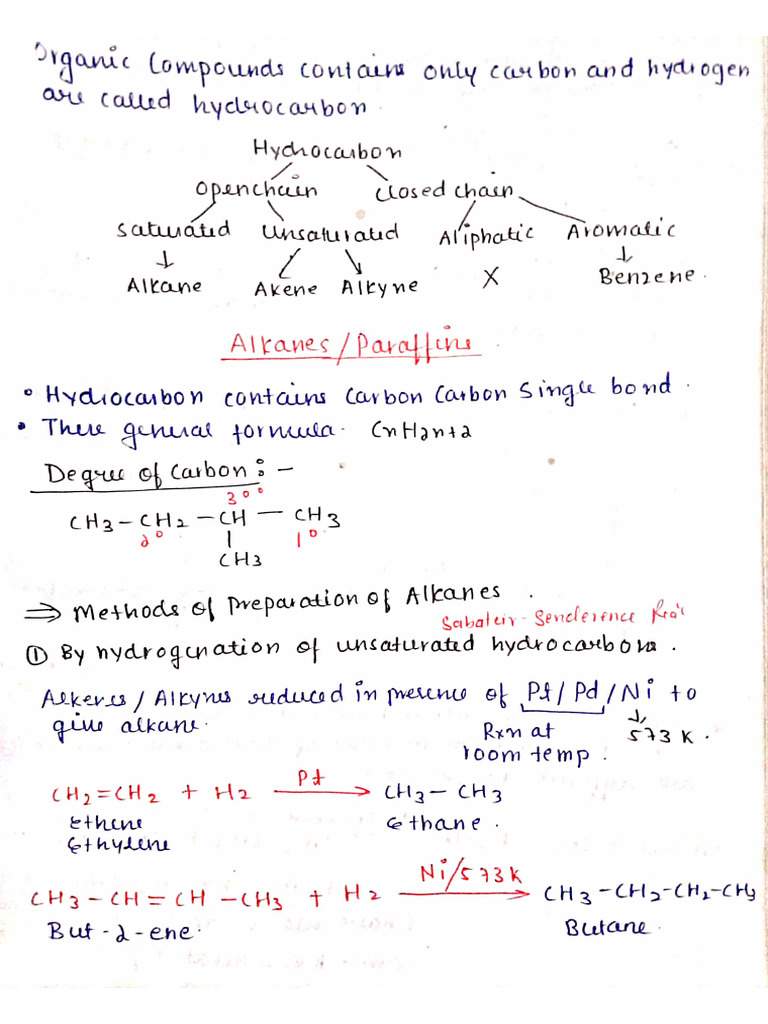 Organic Compounds contains only carbon and hydrogen
are called hydrocarbon.
Hydrocarbon
Openchain Closed chain
Saturated Unsaturated Aliphatic Aromatic
Alkane Akene Alkyne X Benzene.
Alkanes/Paraffins.
• Hydrocarbon contains Carbon Carbon Single bond.
• There general formula. CnH2n+2
Degree of Carbon: -
3°°
CH3-CH2-CH-CH3
2° 1°
CH3
⇒ Methods of Preparation of Alkanes.
Sabateir-Senderence Rea^n
① By hydrogenation of unsaturated hydrocarbons.
Alkenes/Alkynes reduced in presence of Pt/Pd/Ni to
give alkane. Rxn at 573 K.
room temp.
CH2=CH2 + H2 Pt→ CH3-CH3
Ethene Ethane.
Ethylene
CH3-CH=CH-CH3 + H2 Ni/573K→ CH3-CH2-CH2-CH3
But-2-ene. Butane.